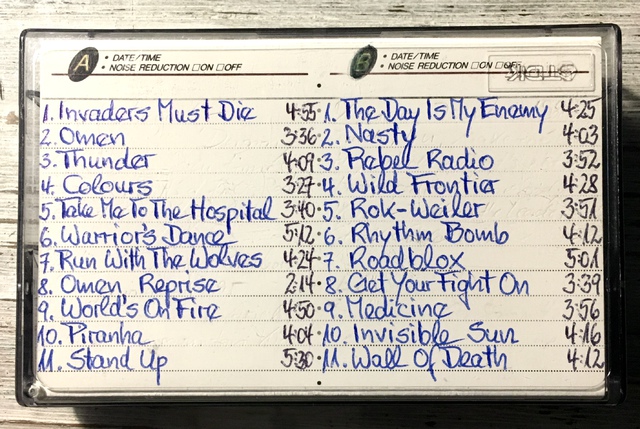 A • DATE/TIME
• NOISE REDUCTION □ON □OFF
1. Invaders Must Die 4:55
2. Omen 3:36
3. Thunder 4:09
4. Colours 3:27
5. Take Me To The Hospital 3:40
6. Warrior's Dance 5:12
7. Run With The Wolves 4:24
8. Omen Reprise 2:14
9. World's On Fire 4:50
10. Piranha 4:04
11. Stand Up 5:30
B • DATE/TIME
• NOISE REDUCTION □ON □OFF
TDK
1. The Day Is My Enemy 4:25
2. Nasty 4:03
3. Rebel Radio 3:52
4. Wild Frontier 4:28
5. Rok-Weiler 3:51
6. Rhythm Bomb 4:12
7. Roadblox 5:01
8. Get Your Fight On 3:39
9. Medicine 3:56
10. Invisible Sun 4:16
11. Wall Of Death 4:12